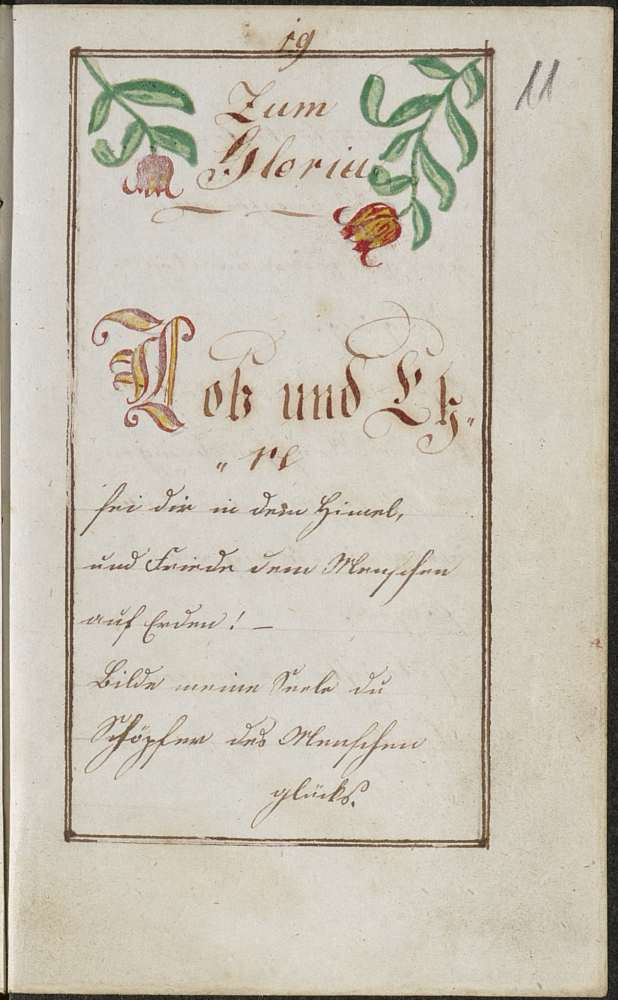 19
11
Zum
Gloria
Lob und Eh„
„re
sei dir in dem Himel,
und Friede dem Menschen
auf Erden! –
Bilde meine Seele du
Schöpfer des Menschen
glücks.